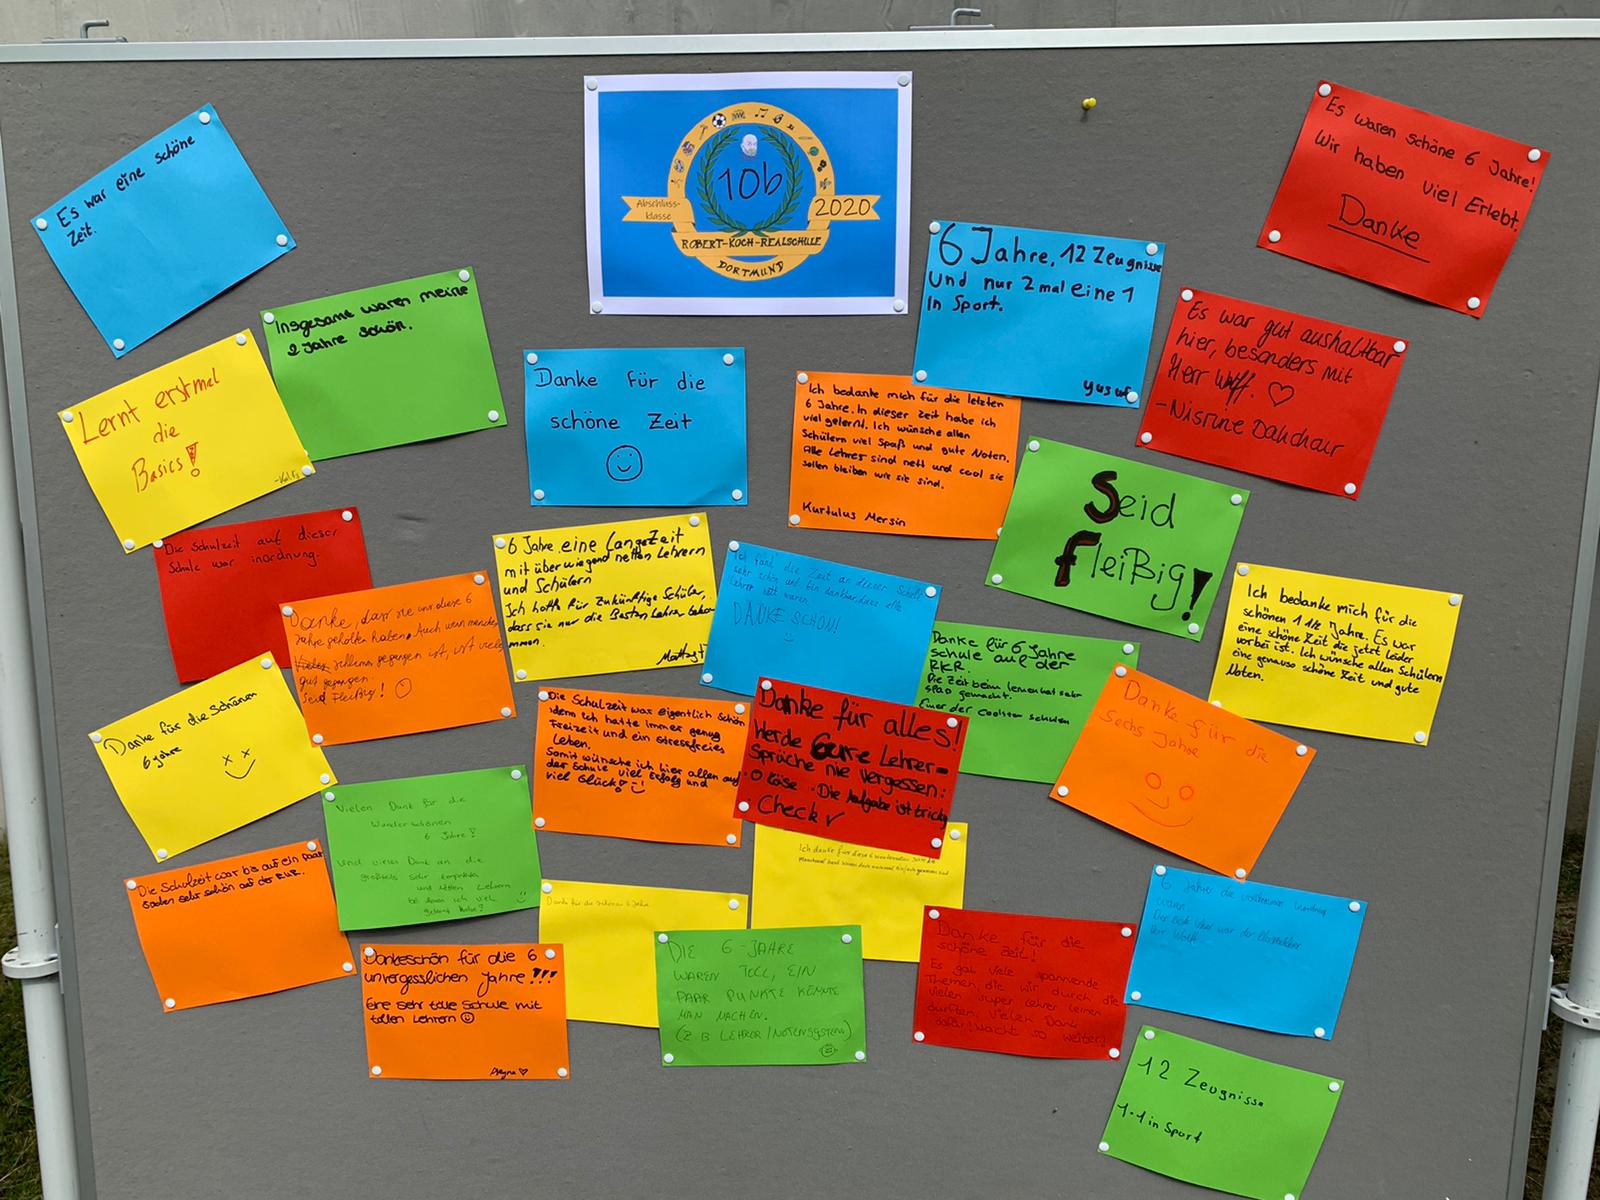 Es war eine schöne
Zeit.
Abschluss-
klasse
10b
2020
ROBERT-KOCH-REALSCHULE
DORTMUND
Es waren schöne 6 Jahre!
Wir haben viel Erlebt.
Danke
6 Jahre, 12 Zeugnisse
Und nur 2 mal eine 1
In Sport.
Yusuf
Insgesamt waren meine
2 Jahre schön.
Es war gut aushaltbar
hier, besonders mit
Herr Wolff. ♡
-Nisrine Dahchour
Lernt erstmal
die
Basics!
Danke für die
schöne Zeit
Ich bedanke mich für die letzten
6 Jahre. In dieser Zeit habe ich
viel gelernt. Ich wünsche allen
Schülern viel Spaß und gute Noten.
Alle Lehrer sind nett und cool sie
sollen bleiben wie sie sind.
Kurtulus Mersin
Seid
Fleißig!
Die Schulzeit auf dieser
Schule war inordnung.
6 Jahre eine LangeZeit
mit überwiegend netten Lehrern
und Schülern
Ich hoffe für Zukünftige Schüler,
dass sie nur die Besten Lehrer beko-
mmen.
Ich fand die Zeit an dieser Schule
sehr schön und bin dankbar, dass alle
Lehrer nett waren.
DANKE SCHÖN!
Ich bedanke mich für die
schönen 1 1/2 Jahre. Es war
eine schöne Zeit die jetzt leider
vorbei ist. Ich wünsche allen Schülern
eine genauso schöne Zeit und gute
Noten.
Danke, dass sie uns diese 6
Jahre geholfen haben. Auch wenn manches
schlimm gegangen ist, ist vieles
gut gegangen.
Seid Fleißig!
Danke für 6 Jahre
schule auf der
RKR.
Die Zeit beim lernen hat sehr
spaß gemacht.
Einer der Coolsten schulen
Danke für die Schönen
6 Jahre
Die Schulzeit war eigentlich schön
denn ich hatte immer genug
Freizeit und ein stressfreies
Leben.
Somit wünsche ich hier allen auf
der Schule viel Erfolg und
viel Glück!
Danke für alles!
Werde Eure Lehrer-
Sprüche nie vergessen:
·O käse ·Die Aufgabe ist tricky
·Check✓
Danke für die
sechs Jahre
Vielen Dank für die
Wunderschönen
6 Jahre!
und vielen Dank an die
großteils sehr kompetenten
und netten Lehrern
bei denen ich viel
gelernt habe!
Die Schulzeit war bis auf ein paar
Sachen sehr schön auf der RKR.
Ich danke für diese 6 wundervollen Jahre
Danke für die schönen 6 Jahre
6 Jahre die
waren
Der Beste Lehrer war der Klassenlehrer
Herr Wolff
Dankeschön für die 6
unvergesslichen Jahre!!!
Eine sehr tolle Schule mit
tollen Lehrern
DIE 6-JAHRE
WAREN TOLL, EIN
PAAR PUNKTE KÖNNTE
MAN MACHEN.
(Z B LEHRER/NOTENSYSTEM)
Danke für die
schöne Zeit!
Es gab viele spannende
Themen, die wir durch die
vielen super Lehrer lernen
durften. Vielen Dank
dafür! Macht so weiter!
12 Zeugnisse
1-1 in Sport